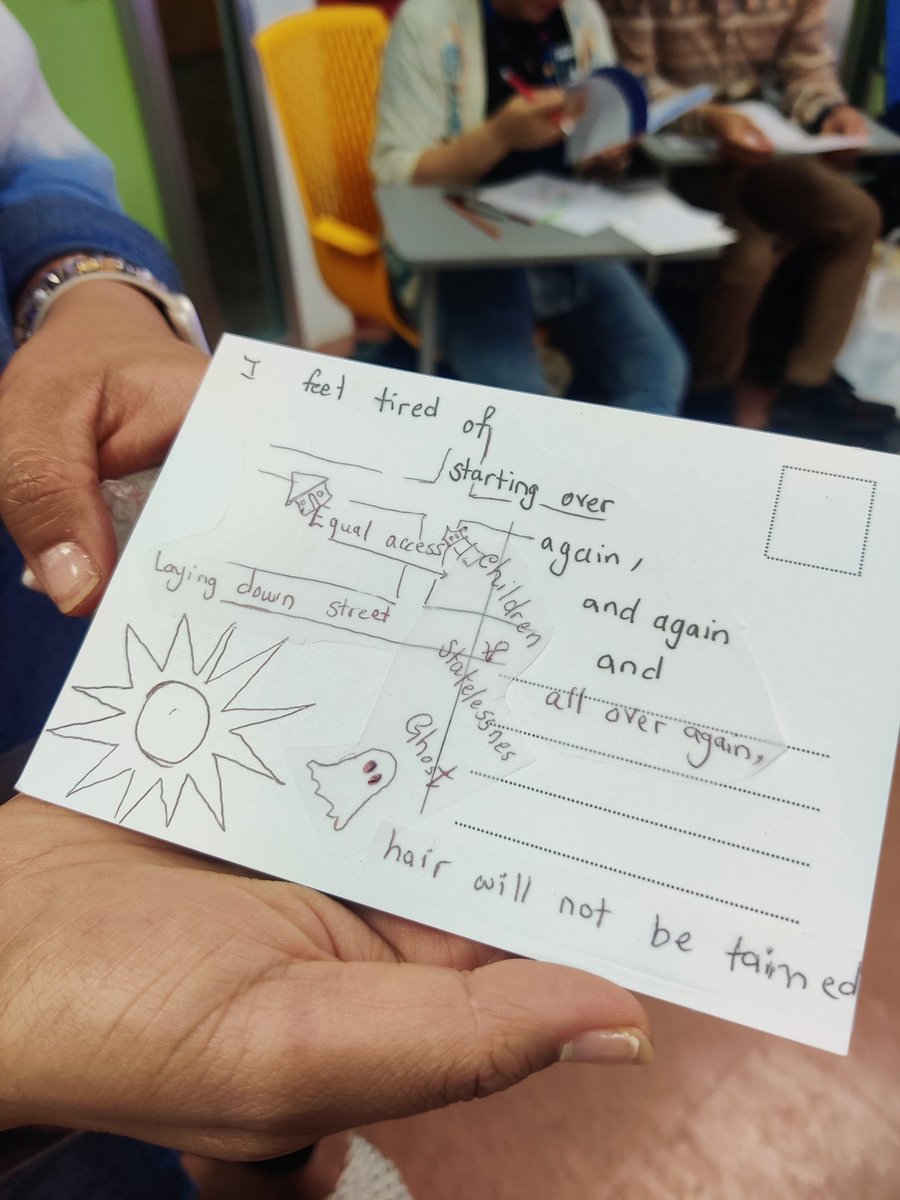 I feel tired of
starting over
again,
and again
and
all over again,
Equal access
Children
Laying down street
&
statelessnes
Ghost
hair will not be taimed